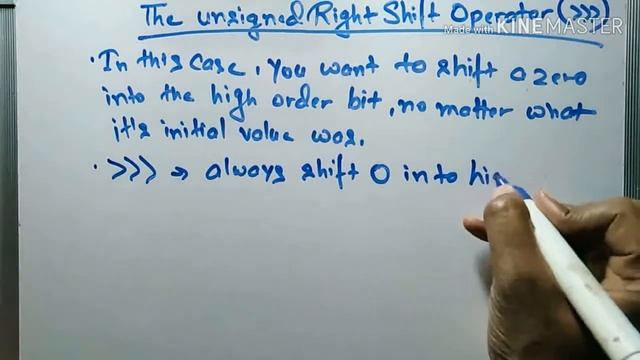 The unsigned Right Shift Operator (>>>)
Made with KINEMASTER
· In this case, you want to shift a zero
into the high order bit, no matter what
it's initial value was.
· >>> → always shift 0 into hig